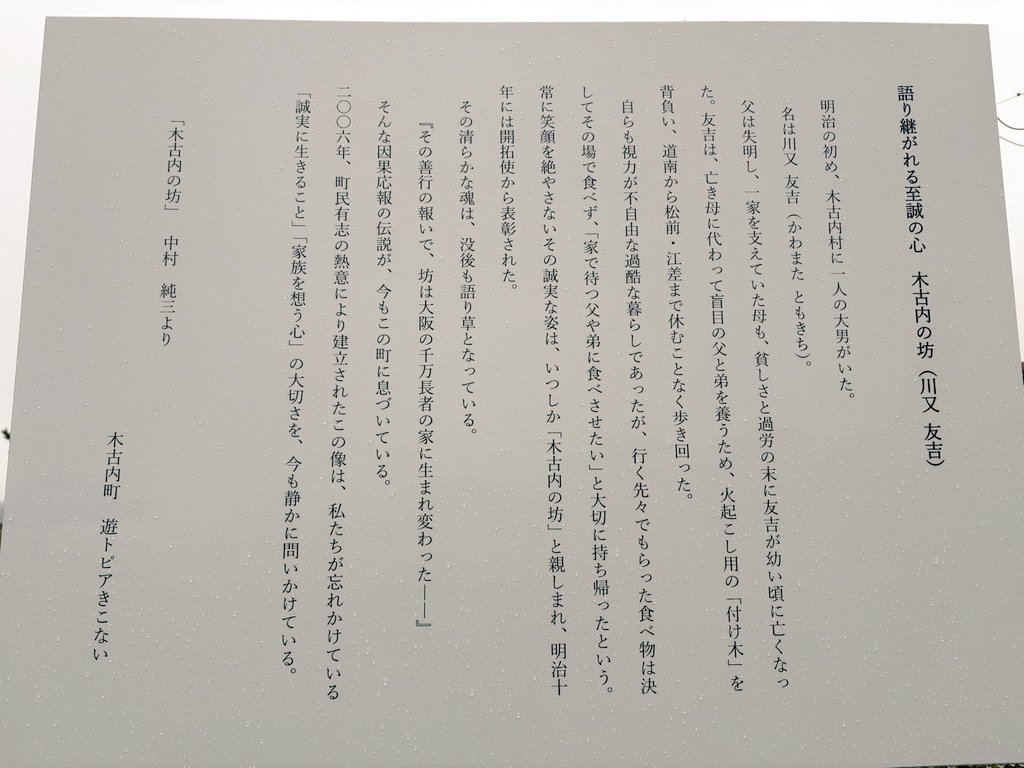 語り継がれる至誠の心　木古内の坊（川又 友吉）
明治の初め、木古内村に一人の大男がいた。
名は川又 友吉（かわまた ともきち）。
父は失明し、一家を支えていた母も、貧しさと過労の末に友吉が幼い頃に亡くなっ
た。友吉は、亡き母に代わって盲目の父と弟を養うため、火起こし用の「付け木」を
背負い、道南から松前・江差まで休むことなく歩き回った。
自らも視力が不自由な過酷な暮らしであったが、行く先々でもらった食べ物は決
してその場で食べず、「家で待つ父や弟に食べさせたい」と大切に持ち帰ったという。
常に笑顔を絶やさないその誠実な姿は、いつしか「木古内の坊」と親しまれ、明治十
年には開拓使から表彰された。
その清らかな魂は、没後も語り草となっている。
『その善行の報いで、坊は大阪の千万長者の家に生まれ変わった――』
そんな因果応報の伝説が、今もこの町に息づいている。
二〇〇六年、町民有志の熱意により建立されたこの像は、私たちが忘れかけている
「誠実に生きること」「家族を想う心」の大切さを、今も静かに問いかけている。
「木古内の坊」　中村　純三より
木古内町　遊トピアきこない